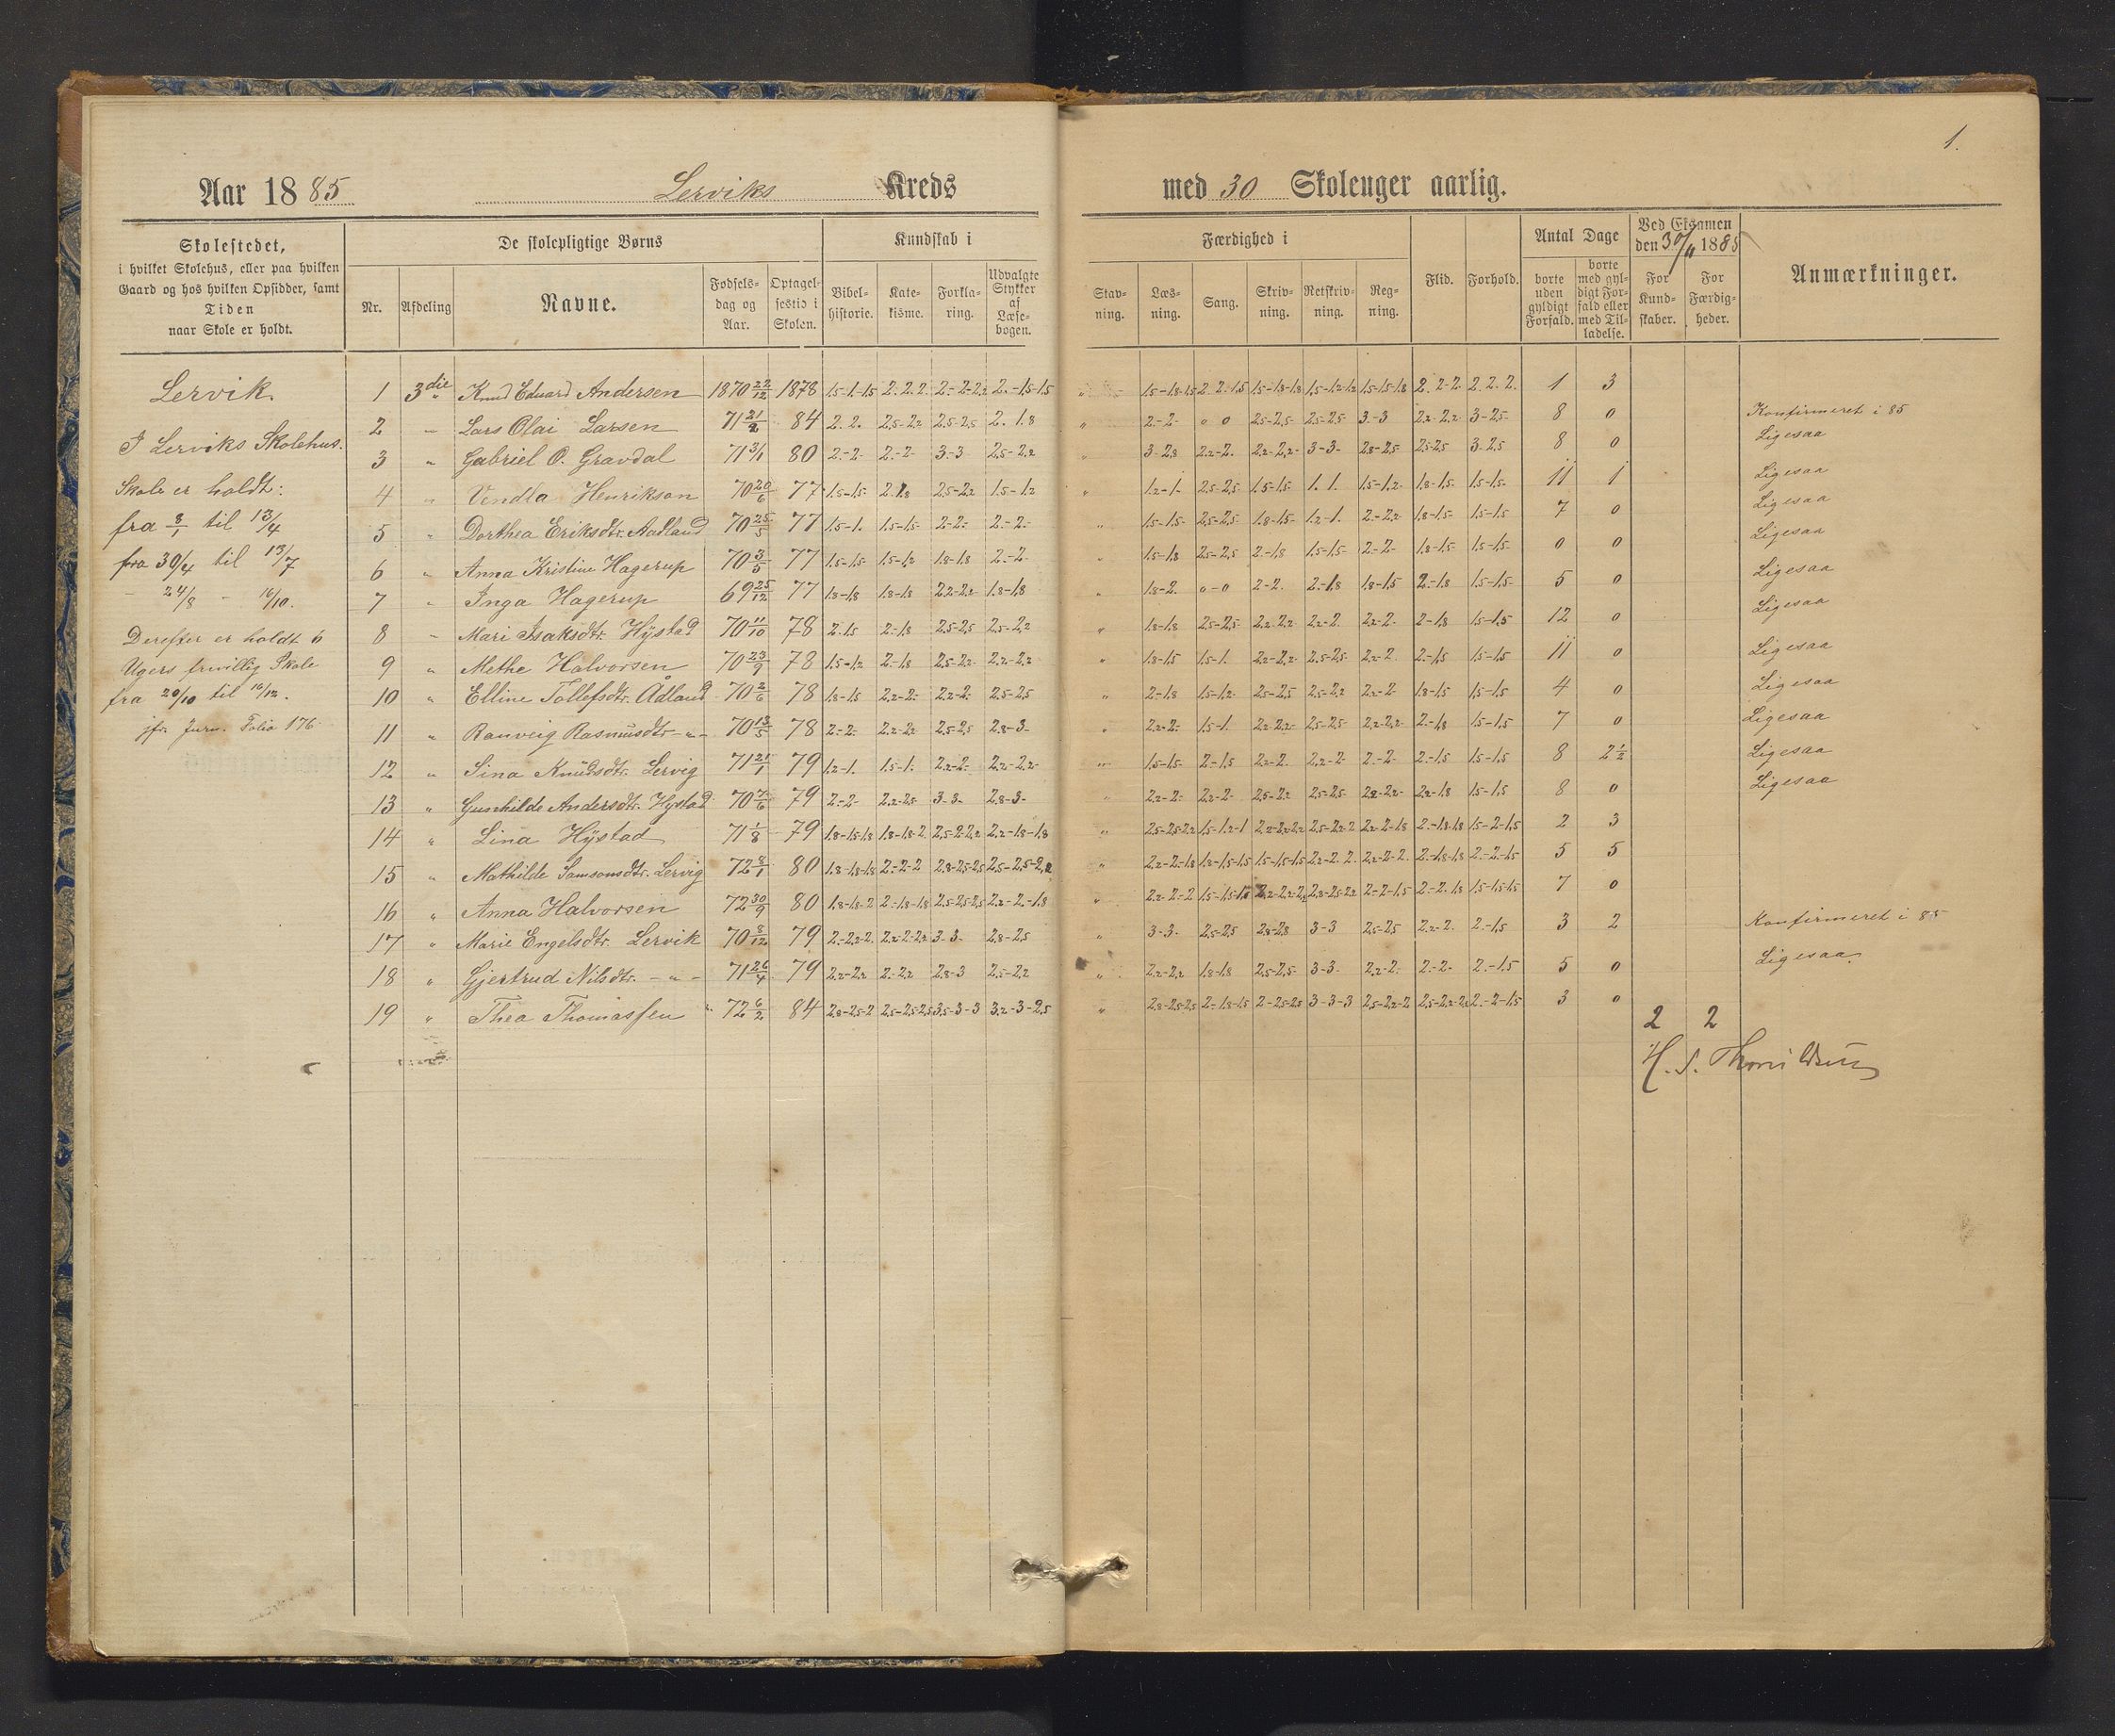 1.
Aar 1885 Lerviks Kreds med 30 Skoleuger aarlig.
Skolestedet,
i hvilket Skolehus, eller paa hvilken
Gaard og hos hvilken Opsidder, samt
Tiden
naar Skole er holdt.
De skolepligtige Børns
Nr.
Afdeling
Navne.
Fødsels-
dag og
Aar.
Optagel-
sestid i
Skolen.
Kundskab i
Bibel-
historie.
Kate-
kisme.
Forkla-
ring.
Udvalgte
Stykker
af
Læse-
bogen.
Færdighed i
Stav-
ning.
Læs-
ning.
Sang.
Skriv-
ning.
Retskriv-
ning.
Reg-
ning.
Flid.
Forhold.
Antal Dage
borte
uden
gyldigt
Forfald.
borte
med gyl-
digt For-
fald eller
med Til-
ladelse.
Ved Eksamen
den 30/11 1885
For
Kund-
skaber.
For
Færdig-
heder.
Anmærkninger.
Lervik.
I Lerviks Skolehus.
Skole er holdt:
fra 8/1 til 13/4
fra 30/4 til 13/7
- 24/8 - 16/10.
Derefter er holdt 6
Ugers frivillig Skole
fra 20/10 til 16/12.
jfr. Jurn. Folio 176
1 3die Knud Eduard Andersen 1870 22/12 1878 1,5-1-1,5 2. 2. 2 2-2-2,2 2-1,5-1,5 " 1,5-1,8-1,5 2. 2. 1,5 1,5-1,8-1,8 1,5-1,2-1,2 1,5-1,5-1,8 2. 2-2 2. 2. 2. 1 3
2 " Lars Olai Larsen 71 21/2 84 2. 2. 2,5-2,2 2,5-2,5 2. 1,8 " 2-2- 0 0 2,5-2,5 2,5-2,5 3-3 2,2-2,2 3-2,5 8 0 Konfirmeret i 85
3 " Gabriel O. Gravdal 71 3/1 80 2-2- 2-2- 3-3 2,5-2,2 " 3-2,8 2,2-2. 2,2-2,2 3-3- 2,8-2,5 2,5-2,5 3-2,5 8 0 Ligesaa
4 " Vendla Henrikson 70 20/6 77 1,5-1,5 2. 1,8 2,5-2,2 1,5-1,2 " 1,2-1. 2,5-2,5 1,5-1,5 1. 1. 1,5-1,2 1,8-1,5 1,5-1,5 11 1 Ligesaa
5 " Dorthea Eriksdtr. Aadland 70 25/5 77 1,5-1. 1,5-1,5 2-2- 2-2- " 1,5-1,5 2,5-2,5 1,8-1,5 1,2-1. 2-2,2 1,8-1,5 1,5-1,5 7 0 Ligesaa
6 " Anna Kristine Hagerup 70 3/5 77 1,5-1,5 1,5-1,2 1,8-1,8 2-2 " 1,5-1,8 2,5-2,5 2-1,8 1,5-1,5 2-2- 1,8-1,5 1,5-1,5 0 0 Ligesaa
7 " Inga Hagerup 69 25/12 77 1,8-1,8 1,8-1,8 2,2-2,2 1,8-1,8 " 1,8-2. 0-0 2-2. 2-1,8 1,8-1,5 2-1,8 1,5-1,5 5 0 Ligesaa
8 " Mari Isaksdtr. Hÿstad 70 11/10 78 2-1,5 2-1,8 2,5-2,5 2,5-2,2 " 1,8-1,8 2,5-2,5 2,2-2,2 2,2-2 2,2-2 2-1,8 1,5-1,5 12 0 Ligesaa
9 " Methe Halvorsen 70 23/9 78 1,5-1,2 2-1,8 2,5-2,2 2,2-2,2 " 1,8-1,5 1,5-1. 2,2-2,2 2,5-2,5 2,2-2 2-1,5 1,5-1,5 11 0 Ligesaa
10 " Elline Tollefsdtr. Ådland 70 2/6 78 1,8-1,5 2,2-2 2,2-2 2,5-2,5 " 2-1,8 1,5-1,2 2,5-2,5 2,5-2,2 2,2-2 1,8-1,5 1,5-1,5 4 0 Ligesaa
11 " Ranveig Rasmusdtr -"- 70 13/5 78 2-2- 2,2-2,2 2,5-2,5 2,8-3- " 2,2-2 1,5-1. 2,2-2,2 2,5-2,5 2,2-2,2 2-1,8 1,5-1,5 7 0 Ligesaa
12 " Sina Knudsdtr. Lervig 71 21/1 79 1,2-1. 1,5-1. 2,2-2 2,2-2,2 " 1,5-1,5 2-1,5 2,2-2 2,2-2 2-2 2-1,5 1,5-1,5 8 2½ Ligesaa
13 " Gunhilde Andersdtr. Hystad 70 7/6 79 2-2- 2,2-2,5 3-3- 2,8-3- " 2,2-2 2,2-2 2,5-2,2 2,5-2,5 2,2-2,2 2,2-1,8 1,5-1,5 8 0 Ligesaa
14 " Lina Hÿstad 71 1/8 79 1,8-1,5-1,8 1,8-1,8-2 2,5-2-2,2 2,2-1,8-1,8 " 2,5-2,5-2,2 1,5-1,2-1 2,2-2,2-2,2 2,5-2,2-2 2,2-2-1,8 2-1,8-1,8 1,5-2-1,5 2 3
15 " Mathilde Samsonsdtr. Lervig 72 8/1 80 1,8-1,8-1,8 2-2-2 2,8-2,5-2,5 2,5-2,5-2,2 " 2,2-2-1,8 1,8-1,5-1,5 1,5-1,5-1,5 2,2-2. 2. 2,2-2-2. 2-1,8-1,8 2-2-1,5 5 5
16 " Anna Halvorsen 72 30/9 80 1,8-1,8-2 2-1,8-1,8 2,5-2,5-2,5 2,2-2-1,8 " 2,2-2-2 1,5-1,5-1,5 2,2-2,2-2,2 2,8-2,5-2,2 2-2-1,5 2-2. 1,8 1,5-1,5-1,5 7 0
17 " Marie Engelsdtr. Lervik 70 8/12 79 2-2,2-2. 2,2-2-2,2 3-3- 2,8-2,5 " 3-3- 2,5-2,5 2,8-2,8 3-3 2,5-2,5 2,2-2. 2-1,5 3 2 Konfirmeret i 85
18 " Gjertrud Nilsdtr. -"- 71 26/4 79 2,2-2,2 2-2,2 2,8-3 2,5-2,2 " 2,2-2,2 1,8-1,8 2,5-2,5 3-3- 2,2-2 2-2- 2-1,5 5 0 Ligesaa.
19 " Thea Thomassen " 72 6/2 84 2,8-2,5-2 2,5-2,5-2,5 3,5-3-3 3,2-3-2,5 " 2,8-2,5-2,5 2-1,8-1,5 2-2,5-2,5 3-3-3 2,5-2,2-2 2,5-2,2-2,2 2-2-1,5 3 0
2 2